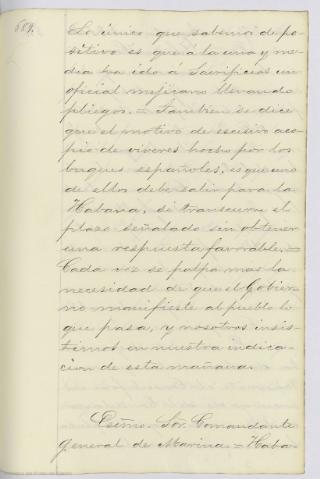 689.
Lo único que sabemos de po-
sitivo es que á la una y me-
dia ha ido á Sacrificios un
oficial mejicano llevando
pliegos. = Tambien se dice
que el motivo de escesivo aco-
pio de viveres hecho por los
buques españoles, es que uno
de ellos debe salir para la
Habana, si transcurre el
plazo señalado sin obtener
una respuesta favorable. =
Cada vez se palpa mas la
necesidad de que el Gobier-
no manifieste al pueblo lo
que pasa, y nosotros insis-
timos en nuestra indica-
cion de esta mañana.
Escmo. Sor. Comandante
General de Marina = Haba-